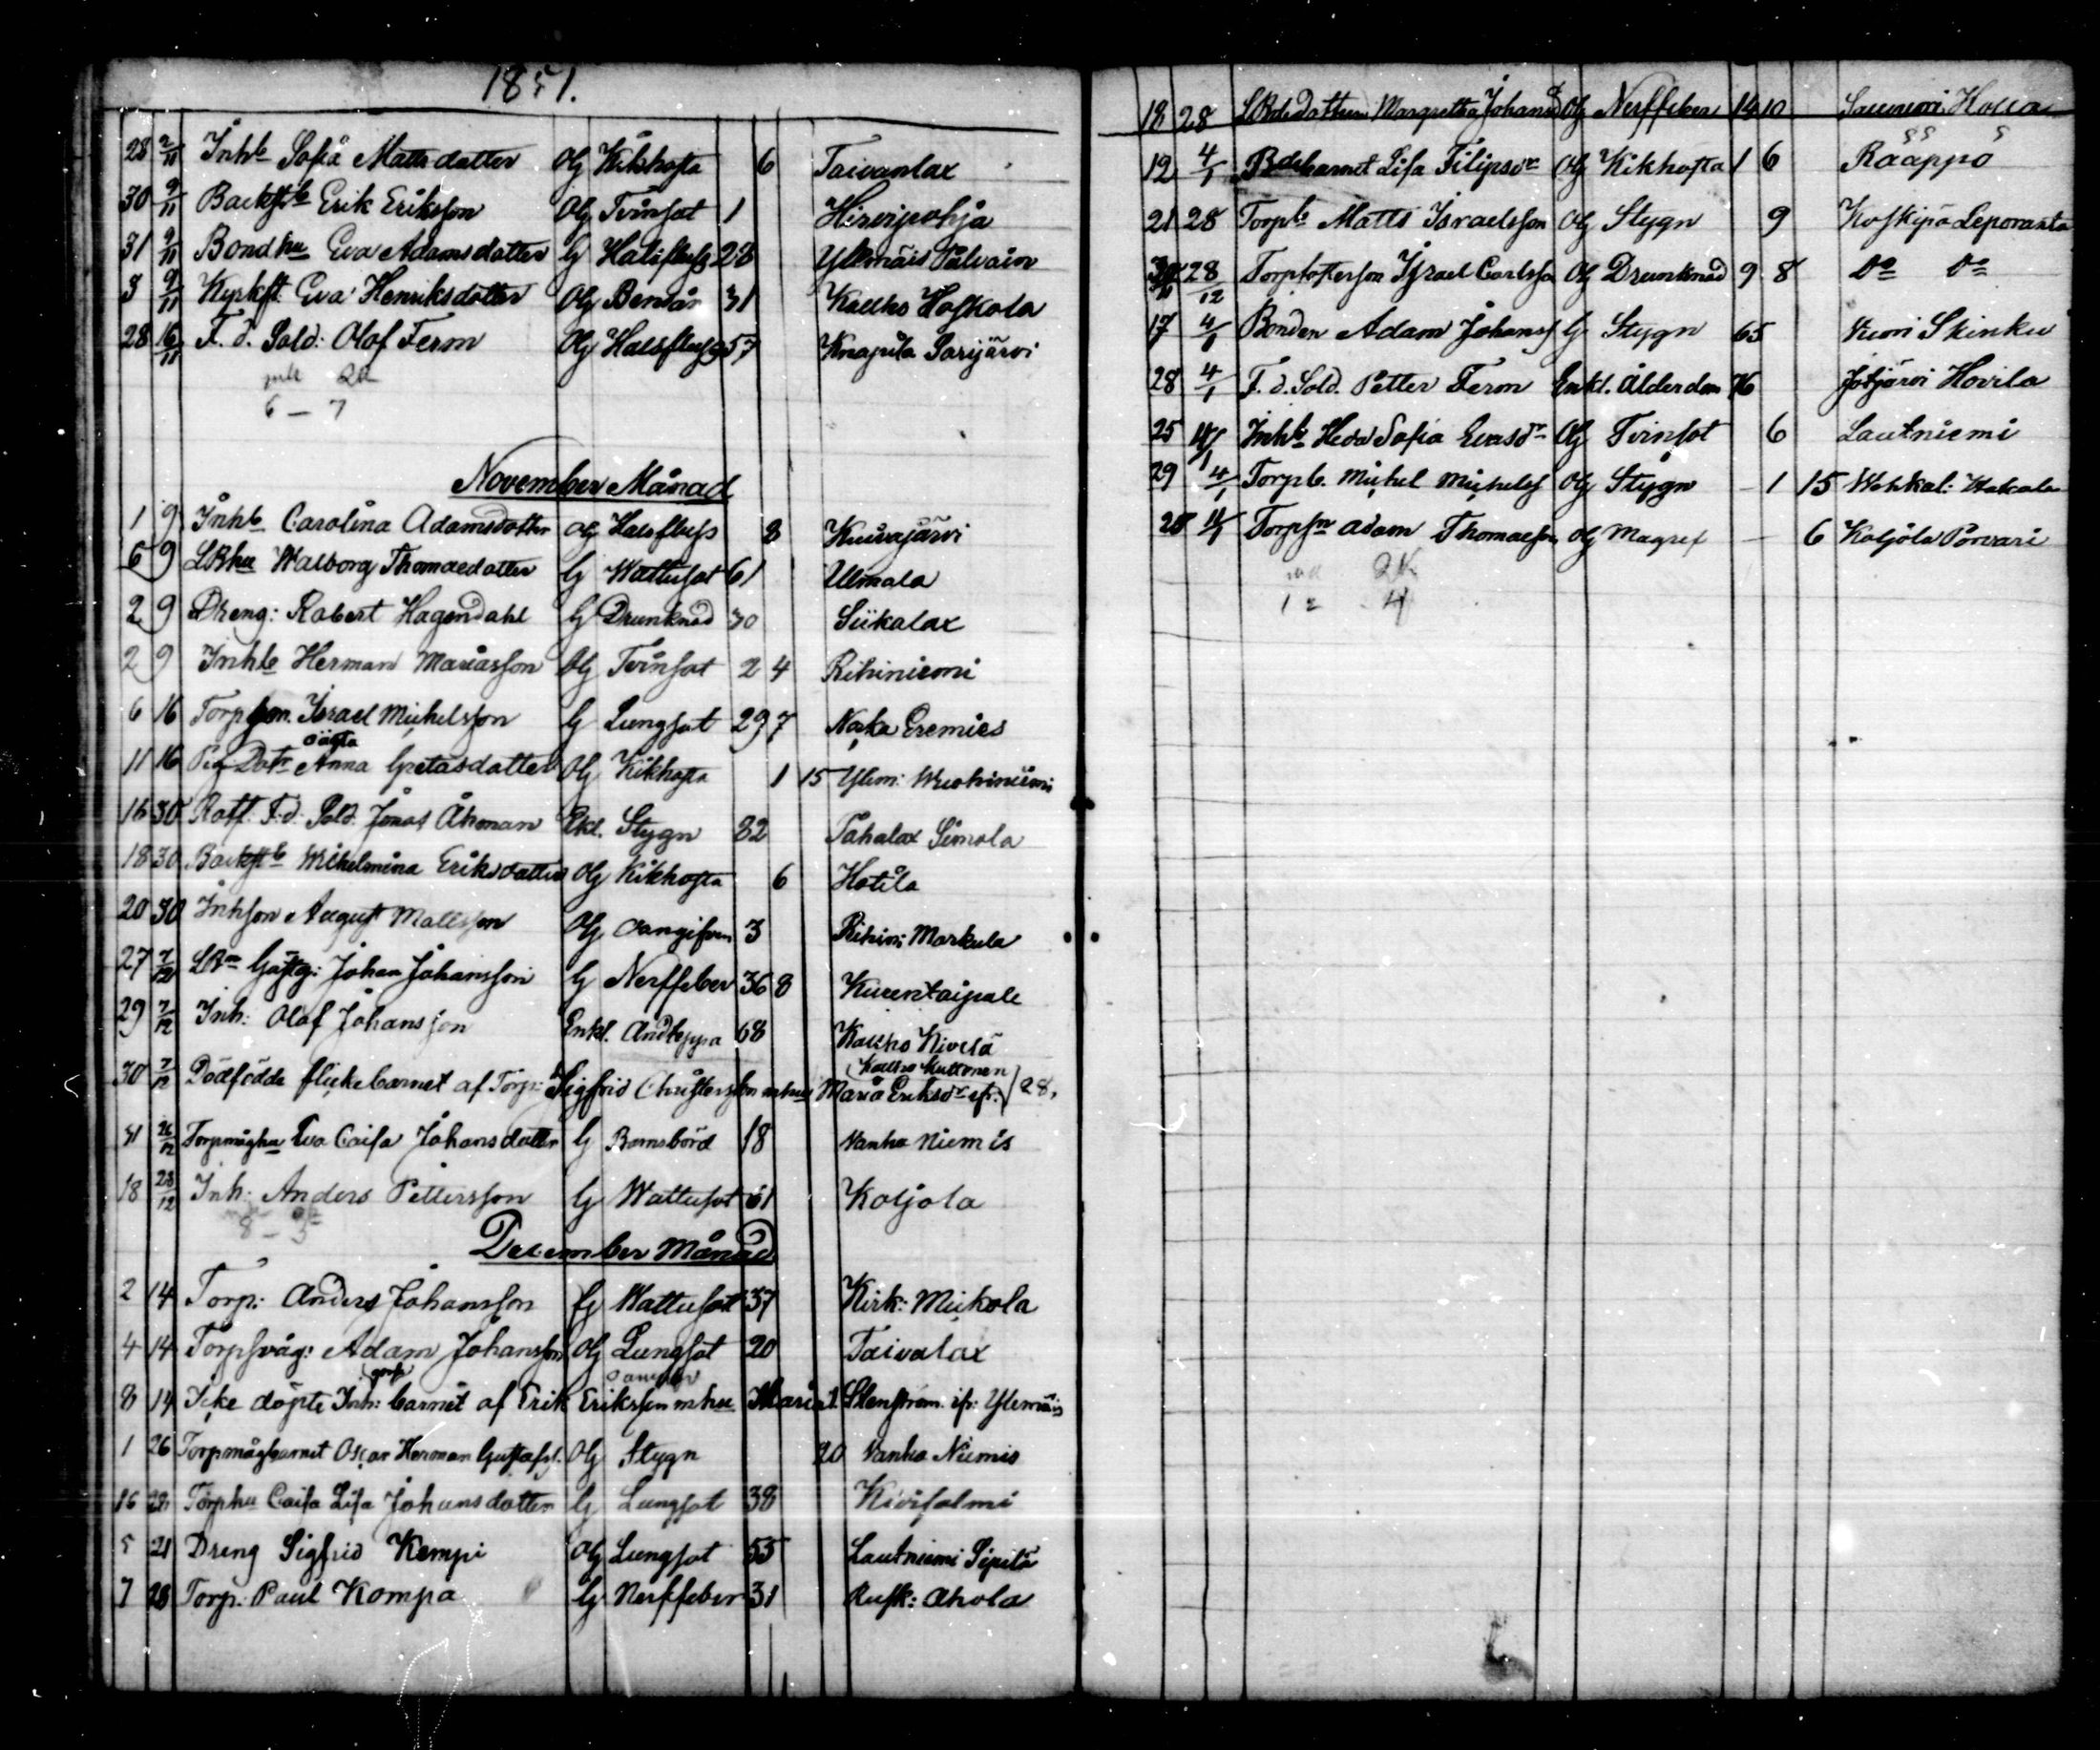 1851.
28 2/11 Inhb Sofia Mattsdotter Og Kikhosta 6 Taivanlax
30 9/11 Backstb Erik Eriksson Og Tvinsot 1 Hirvipohja
31 9/11 Bondhu Eva Adamsdotter G Halsfluss 28 Yllmäis Pälvain
3 9/11 Kyrkft Eva Henriksdotter Og Benvär 31 Kallko Hoskola
28 16/11 F. d. Sold: Olof Ferm Og Halsfluss 57 Knapila Sarijärvi
6 – 7
November Månad
1 9 Inhb Carolina Adamsdotter Og Halsfluss 8 Kuivajärvi
6 9 LBhu Walborg Thomasdotter G Wattusot 61 Ullmala
2 9 Dreng: Robert Hagendahl G Drunknad 30 Siikalax
2 9 Inhb Herman Mariasson Og Tvinsot 2 4 Rihiniemi
6 16 Torpson Israel Michelsson G Lungsot 29 7 Nocka Eremies
11 16 Pig Dotr oägta Anna Gretasdotter Og Kikhosta 1 15 Ylem: Wuohiniemi
16 30 Rotf. F.d. Sold. Jonas Åhman Ekl. Stygn 82 Tahalax Simola
18 30 Backstb Wilhelmina Eriksdotter Og Kikhosta 6 Hotila
20 30 Inhson August Mattsson Og Oangifven 3 Rihini Markula
27 7/12 LBn Gästg: Johan Johansson G Nerffeber 36 8 Kuurntaipale
29 7/12 Inh: Olof Johansson Enkl. Andteppa 68 Kallko Kivelä
30 7/12 Dödfödda flickebarnet af Torp: Sigfrid Christersson mhu Maria Eriksdr ifr. Kallko Kuttonen 28,
31 26/12 Torpmåghu Eva Caisa Johansdotter G Barnsbörd 18 Vanha Niemis
18 28/12 Inh: Anders Pettersson G Wattusot 61 Koljola
8 – 5
December Månad
2 14 Torp: Anders Johansson G Wattusot 37 Kirk: Mickola
4 14 Torpsvåg: Adam Johansson Og Lungsot 20 Taivalax
8 14 Icke döpte Inh: barnet af Erik Eriksson mhu Maria Stenström ifr: Ylemäis
1 26 Torpmågbarnet Oscar Herman Gustafs. Og Stygn 20 Vanha Niemis
16 28 Torphu Caisa Lisa Johansdotter G Lungsot 38 Kivisalmi
5 21 Dreng Sigfrid Kempi Og Lungsot 55 Lautniemi Sipilä
7 28 Torp. Paul Kompa G Nerffeber 31 Rusk: Ahola
18 28 LBdedottern Margretha Johansd Og Nerffeber 14 10 Saunioni Holla
19 4/1 Bdebarnet Lisa Filipsdr Og Kikhosta 1 6 Rääppö
21 28 Torpb Matts Israelsson Og Stygn 9 Koskipä Leporanta
30/11 28/12 Torpdotterson Israel Carlsson Og Drunknad 9 8 Do Do
17 4/1 Bonden Adam Johanss G Stygn 65 Vuori Skinku
28 4/1 F. d. Sold. Petter Ferm Enkl. Ålderdom 76 Jotjärvi Hovila
25 4/1 Inhb Heda Sofia Evasdr Og Tvinsot 6 Lautniemi
29 4/1 Torpb. Michel Michelss Og Stygn – 1 15 Wohkal: Wakala
28 4/1 Torpsn Adam Thomasson Og Magref – 6 Koljola Porvari
12 4